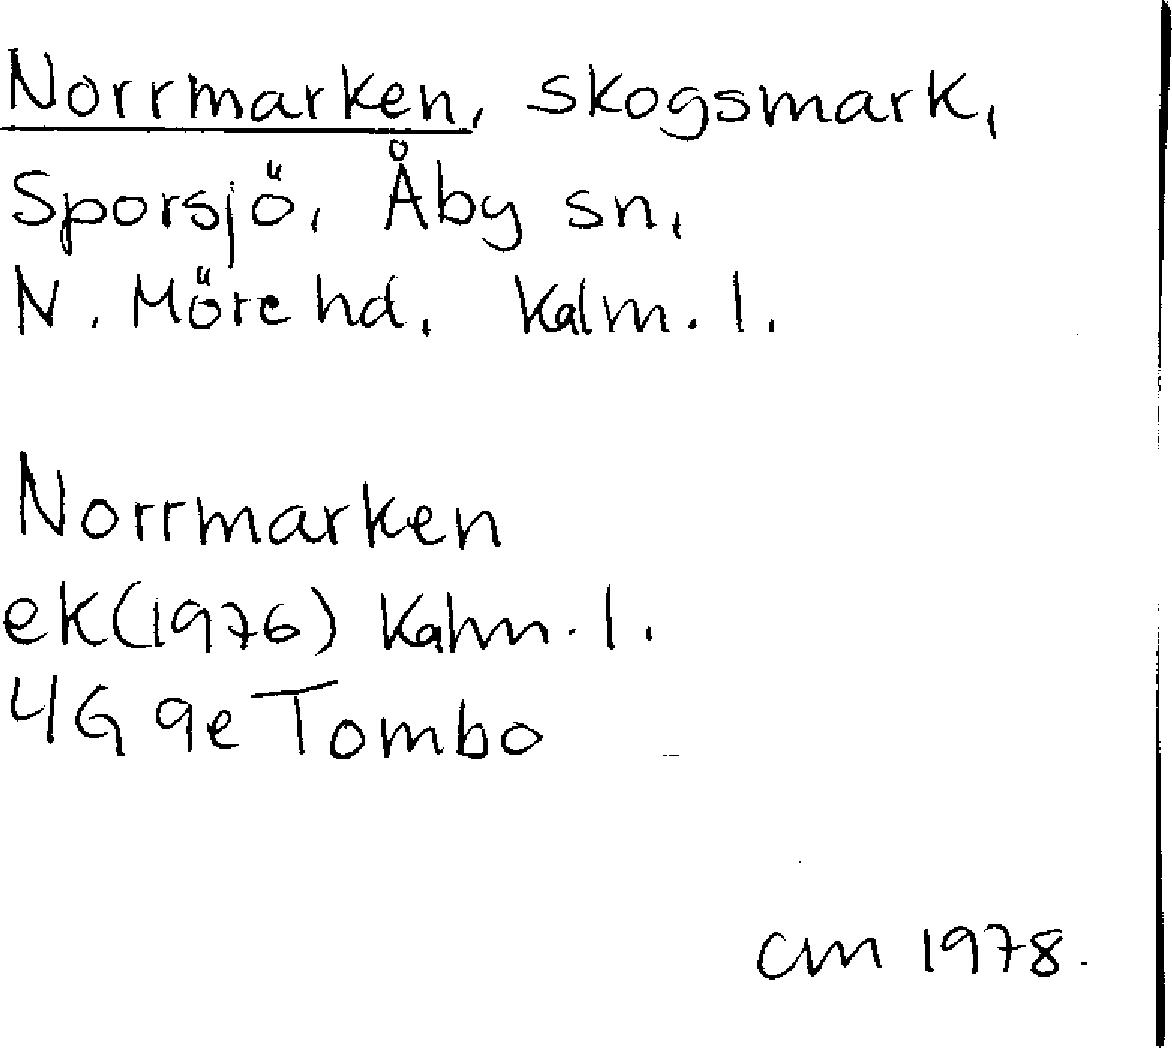 Norrmarken, skogsmark,
Sporsjö, Åby sn,
N. Möre hd, Kalm. l.
Norrmarken
ek (1976) Kalm. l.
4G 9e Tombo
cm 1978.